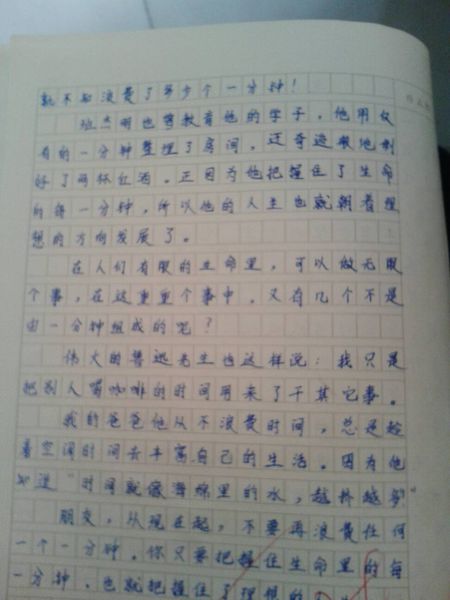 就不知浪费了多少个一分钟！
班杰明也曾教育他的学子，他用仅
有的一分钟整理了房间，还奇迹般地倒
好了两杯红酒。正因为他把握住了生命
的每一分钟，所以他的人生也就朝着理
想的方向发展了。
在人们有限的生命里，可以做无限
个事，在这重重个事中，又有几个不是
由一分钟组成的呢？
伟大的鲁迅先生也这样说：我只是
把别人喝咖啡的时间用来了干其它事。
我的爸爸他从不浪费时间，总是趁
着空闲时间去丰富自己的生活。因为他
知道“时间就像海绵里的水，越挤越多”
朋友，从现在起，不要再浪费任何
一个一分钟。你只要把握住生命里的每
一分钟，也就把握住了理想的